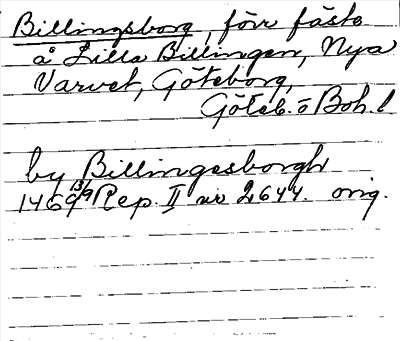 Billingsborg, förr fäste
å Lilla Billingen, Nya
Varvet, Göteborg,
Göteb. o Boh. l
by Billingesborgh
1469 13/9 Rep. II nr 2644. orig.